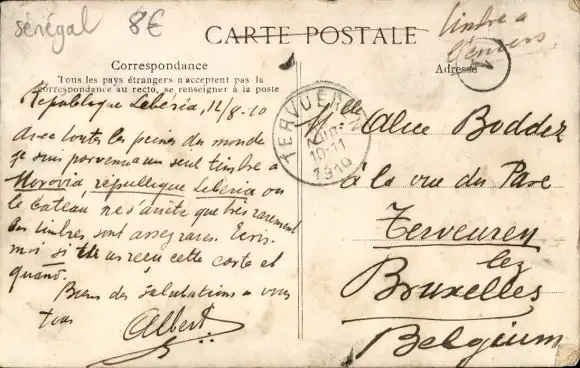 sénégal 8€
CARTE POSTALE
timbre a
l'envers
Correspondance
Tous les pays étrangers n'acceptent pas la
correspondance au recto, se renseigner à la poste
Adresse
République Leberia, 12/8-10
Avec toutes les peines du monde
je suis parvenu a un seul timbre a
Morovia république Leberia ou
le bateau ne s'arrête que très rarement
les timbres sont assez rares. Ecris
moi si tu as reçu cette carte et
quand.
Biens des salutations a vous
tous
Albert
TERVUEREN
10-11
1910
Mlle Alice Boddez
à la rue du Parc
Terveuren
lez
Bruxelles
Belgium